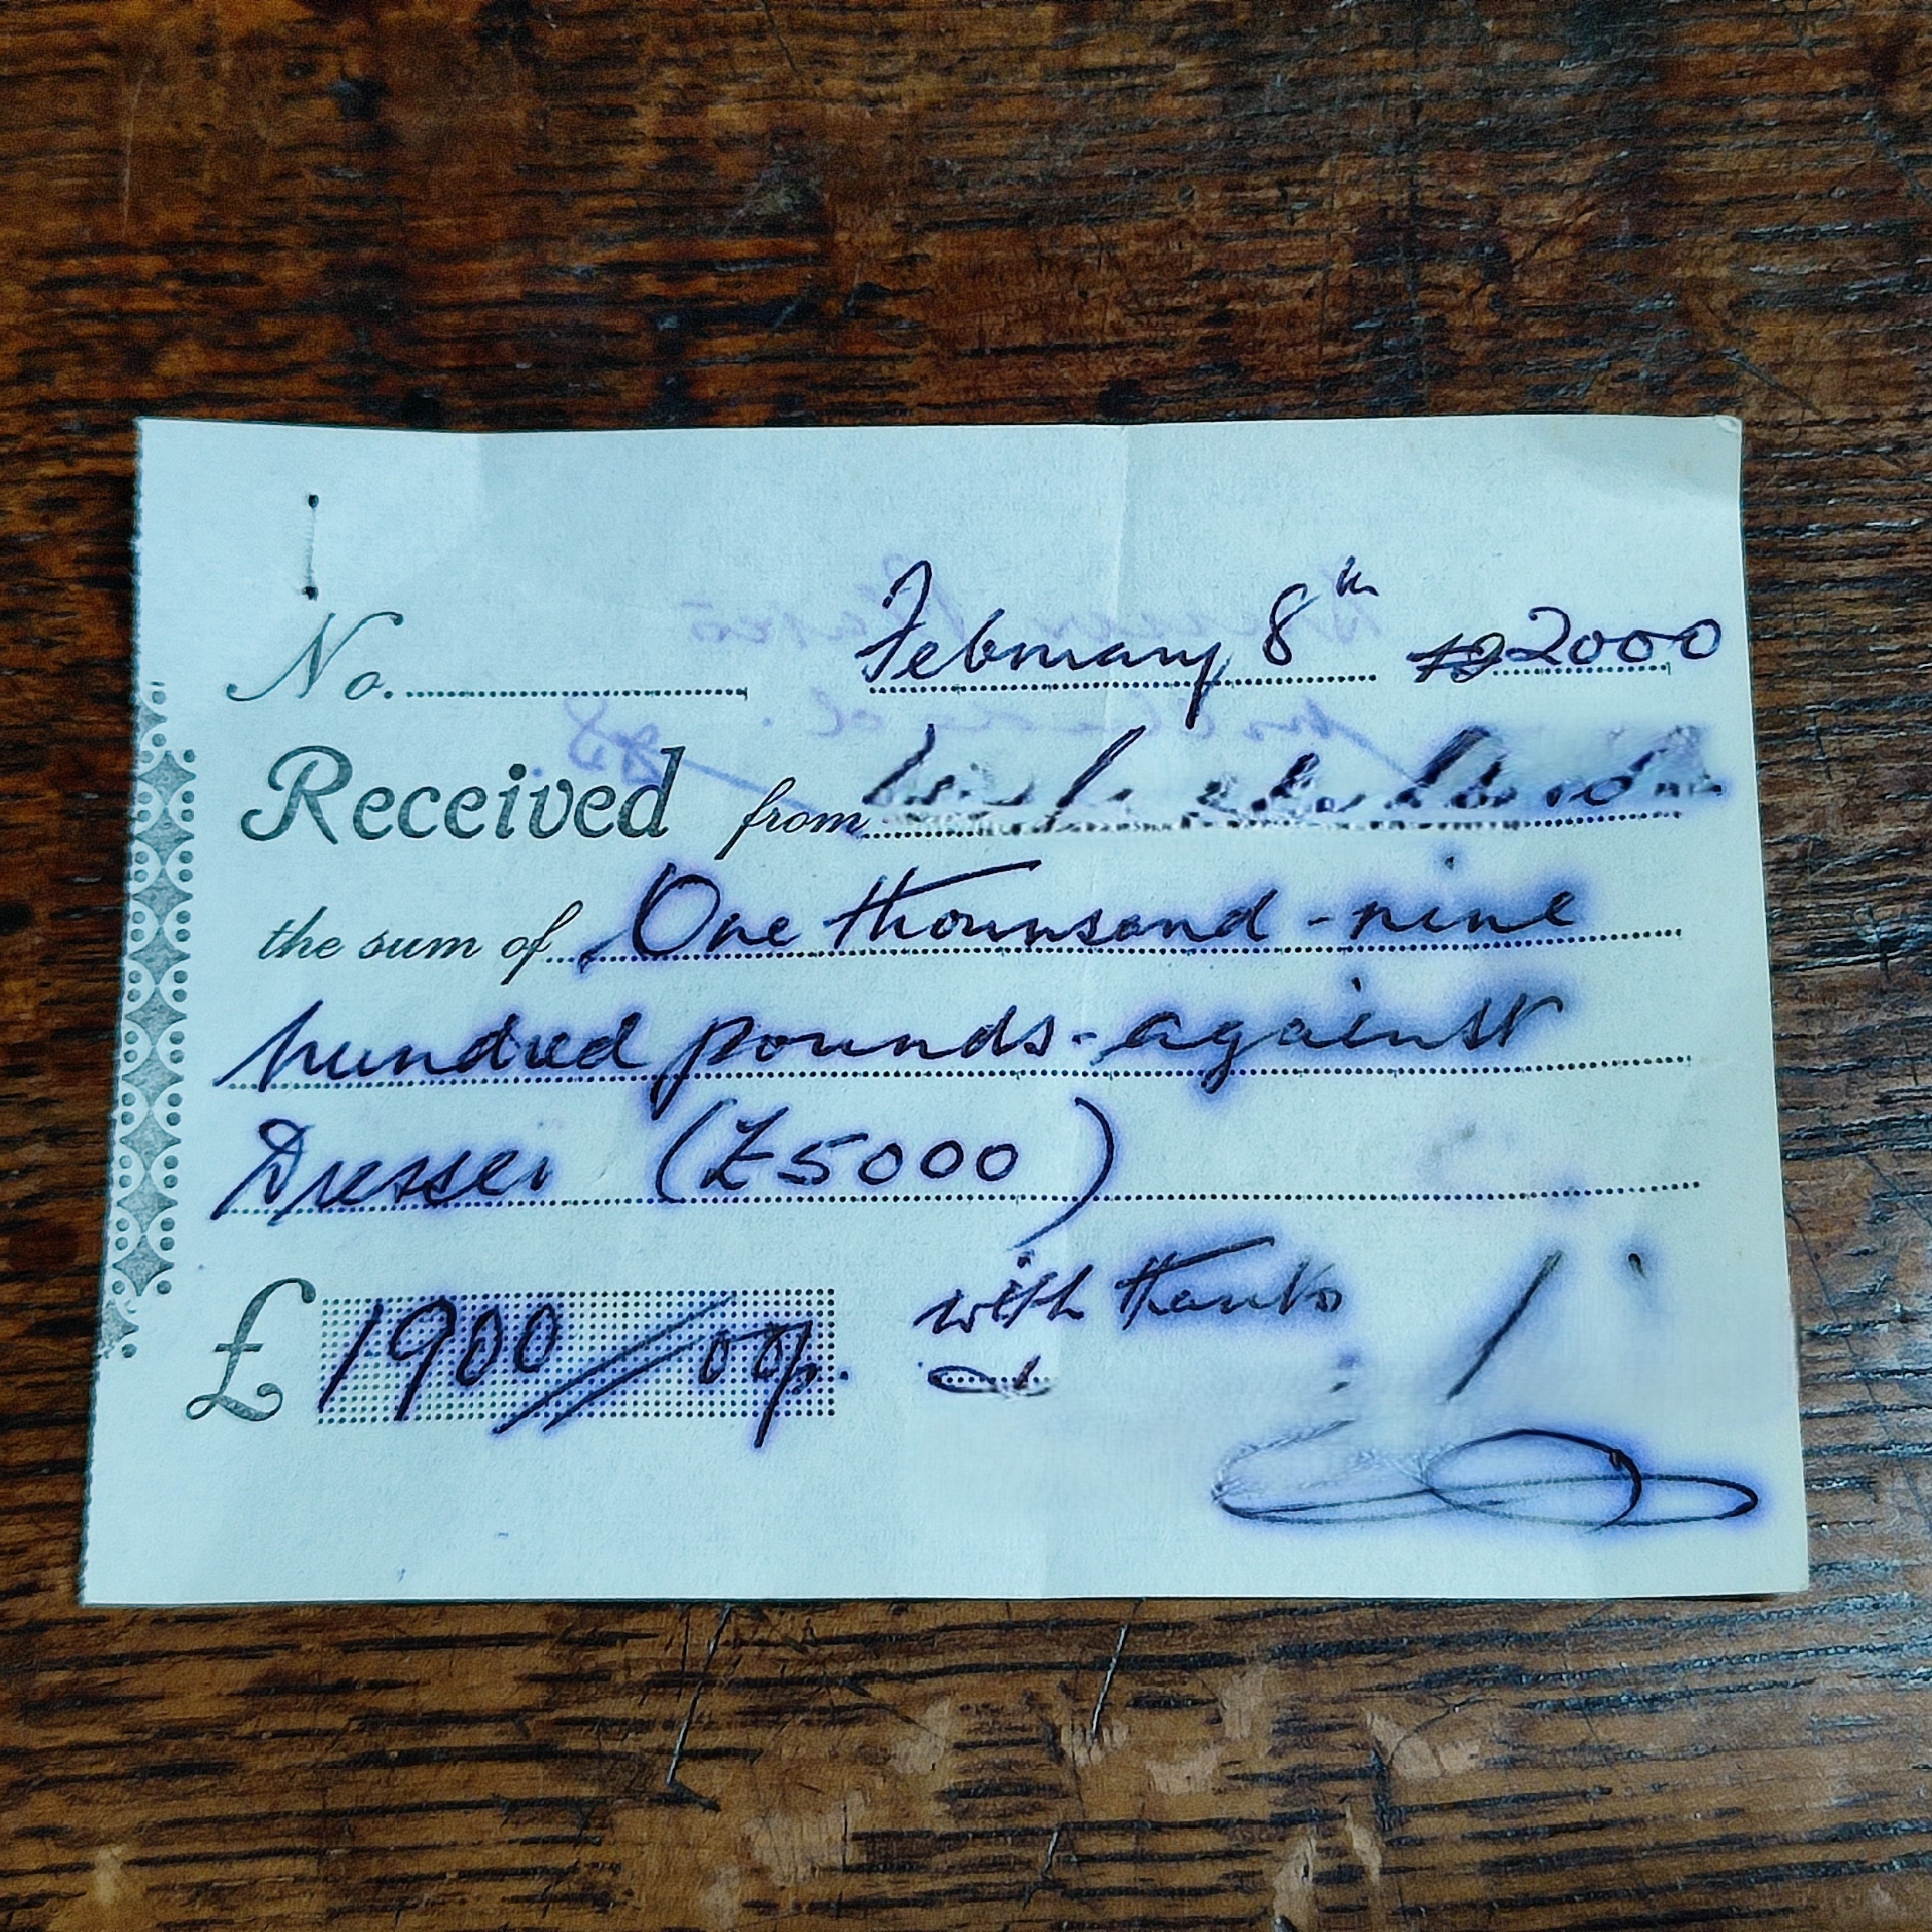 No. February 8th 19 2000
Received from
the sum of One thousand - nine
hundred pounds - against
Dresser (£5000)
£ 1900 // 00p. with thanks